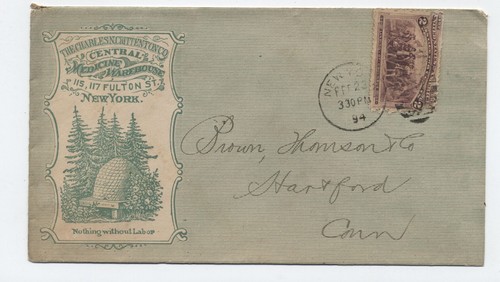 THE CHARLES N. CRITTENTON CO.
CENTRAL
MEDICINE
WAREHOUSE
115, 117 FULTON ST.
NEW YORK.
Nothing without Labor
NEW
FEB 23
3 30 PM
94
2
Brown, Thomson & Co
Hartford
Conn